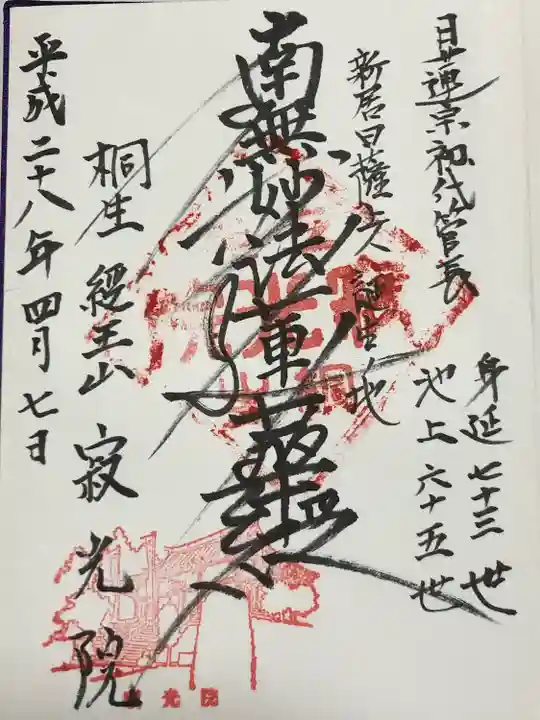 日蓮宗初代管長
身延七十三世
池上六十五世
新居日薩 誕生地
南無妙法蓮華経
桐生 経王山 寂光院
平成二十八年四月七日
光院